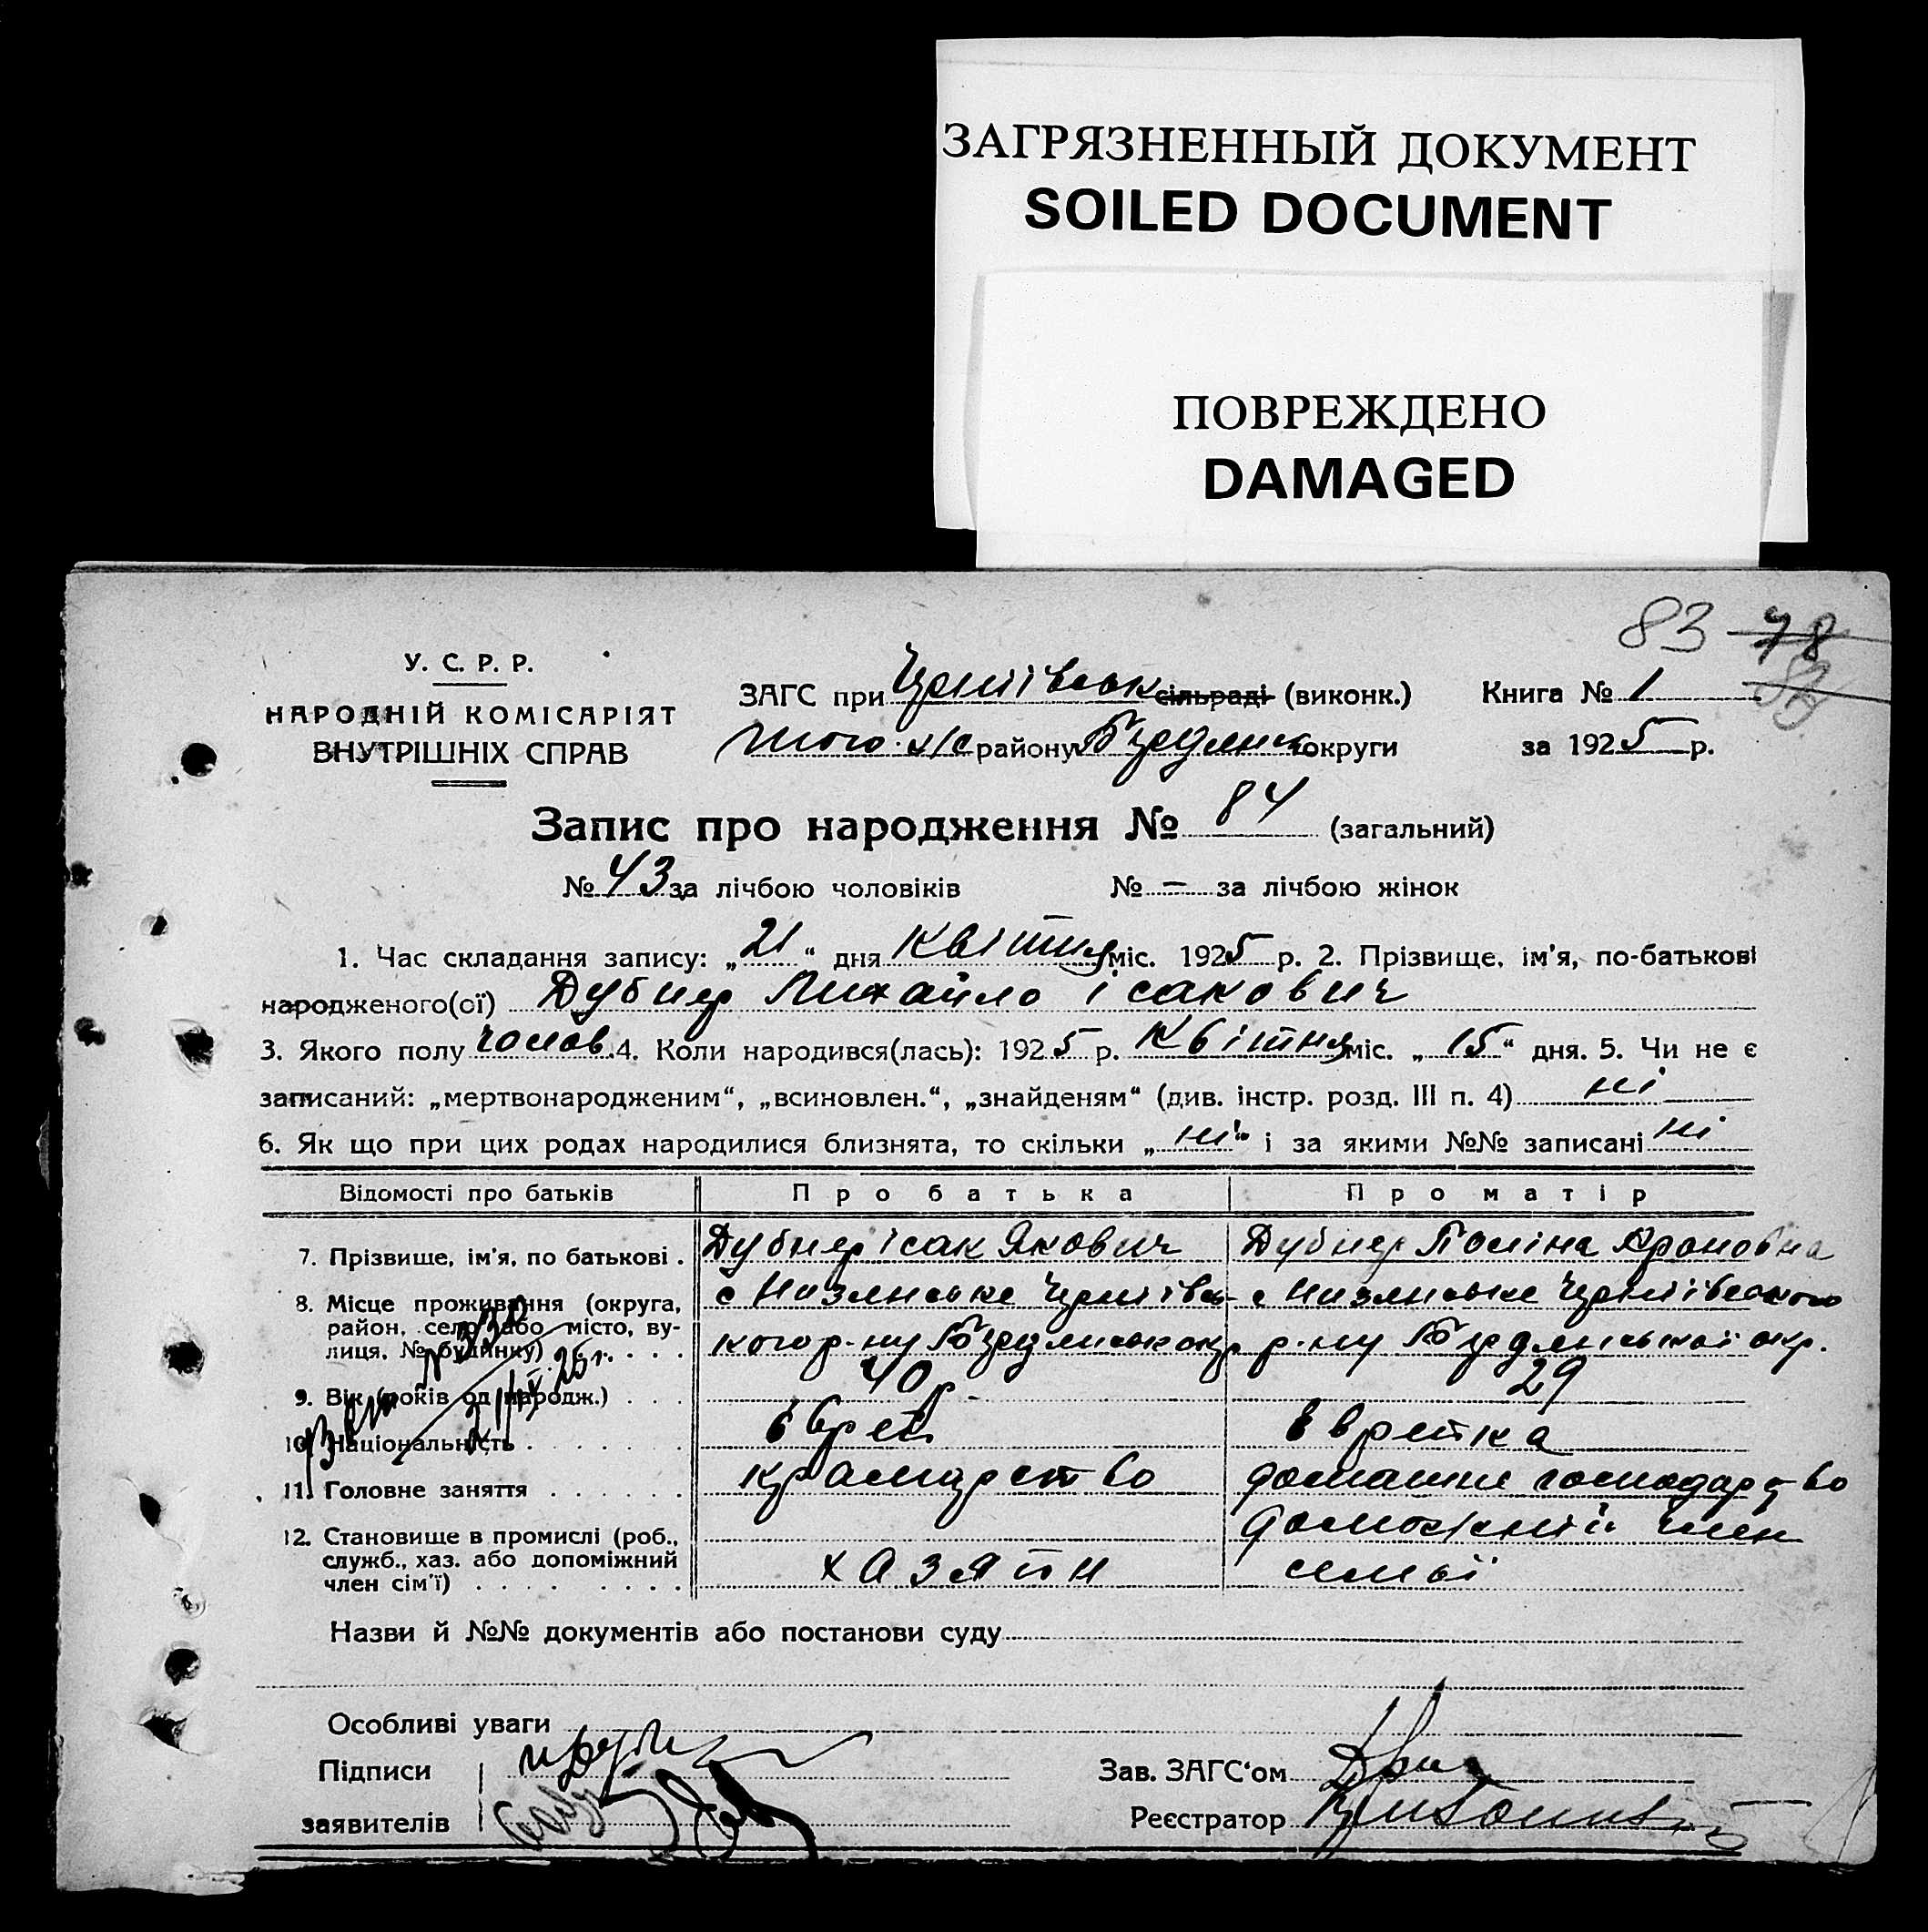 ЗАГРЯЗНЕННЫЙ ДОКУМЕНТ
SOILED DOCUMENT
ПОВРЕЖДЕНО
DAMAGED
83 78
У. С. Р. Р.
НАРОДНІЙ КОМІСАРІЯТ
ВНУТРІШНІХ СПРАВ
ЗАГС при сільраді (виконк.) Книга № 1
району округи за 1925 р.
Запис про народження № 84 (загальний)
№ 43 за лічбою чоловіків № — за лічбою жінок
1. Час складання запису: „21“ дня Квітня міс. 1925 р. 2. Прізвище, ім'я, по-батькові
народженого(ої) Дубнер Михайло ісакович
3. Якого полу чолов. 4. Коли народився(лась): 1925 р. Квітня міс. „15“ дня. 5. Чи не є
записаний: „мертвонародженим“, „всиновлен.“, „знайденям“ (див. інстр. розд. III п. 4) ні
6. Як що при цих родах народилися близнята, то скільки „ні“ і за якими №№ записані ні
Відомості про батьків Про батька Про матір
7. Прізвище, ім'я, по батькові . Дубнер ісак Якович Дубнер Поліна Ароновна
8. Місце проживання (округа,
район, село або місто, ву-
лиця, № будинку) . . . . р-ну р-ну окр.
9. Вік (років од народж.) . . . 40 р. 29
10. Національність . . . . . . . єврей євретка
11. Головне заняття . . . . . . крамарство домашнє господарство
12. Становище в промислі (роб.,
служб., хаз. або допоміжний
член сім'ї) . . . . . . . . . хазяїн член семьї
Назви й №№ документів або постанови суду
Особливі уваги
Підписи Зав. ЗАГС'ом
заявителів Реєстратор